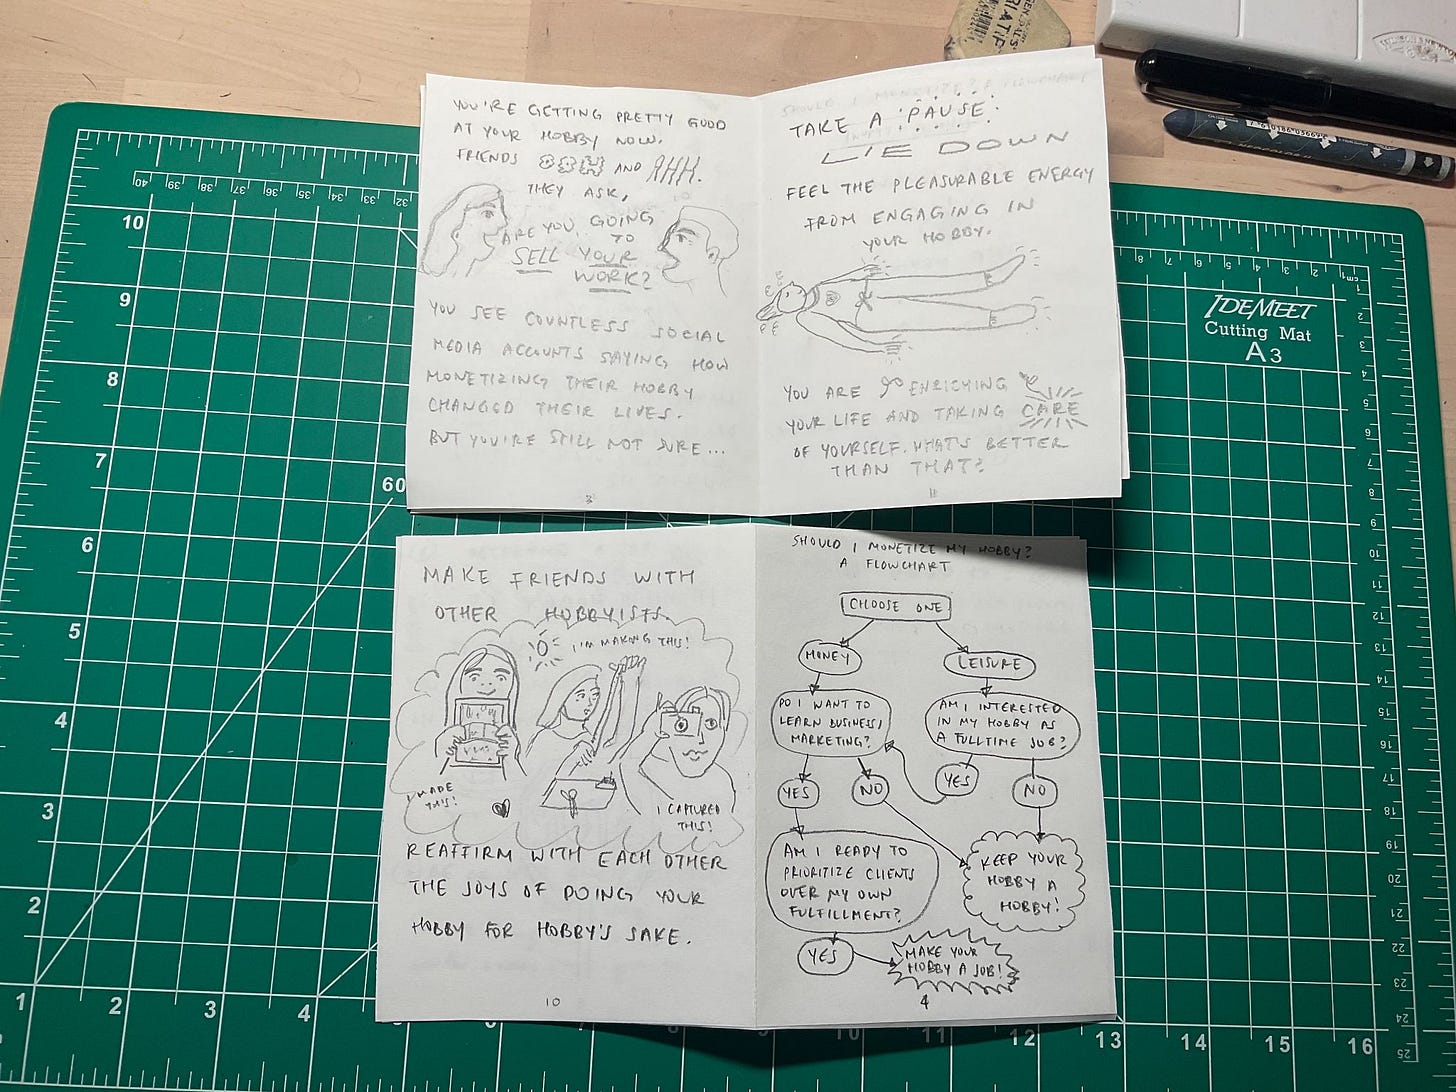 YOU'RE GETTING PRETTY GOOD
AT YOUR HOBBY NOW.
FRIENDS AND AHH.
THEY ASK,
ARE YOU GOING
TO
SELL YOUR
WORK?
YOU SEE COUNTLESS SOCIAL
MEDIA ACCOUNTS SAYING HOW
MONETIZING THEIR HOBBY
CHANGED THEIR LIVES.
BUT YOU'RE STILL NOT SURE...
3
TAKE A PAUSE.
LIE DOWN
FEEL THE PLEASURABLE ENERGY
FROM ENGAGING IN
YOUR HOBBY.
YOU ARE ENRICHING
YOUR LIFE AND TAKING CARE
OF YOURSELF. WHAT'S BETTER
THAN THAT?
11
MAKE FRIENDS WITH
OTHER HOBBYISTS.
I'M MAKING THIS!
I MADE
THIS!
I CAPTURED
THIS!
REAFFIRM WITH EACH OTHER
THE JOYS OF DOING YOUR
HOBBY FOR HOBBY'S SAKE.
10
SHOULD I MONETIZE MY HOBBY?
A FLOWCHART
CHOOSE ONE
MONEY
LEISURE
DO I WANT TO
LEARN BUSINESS/
MARKETING?
AM I INTERESTED
IN MY HOBBY AS
A FULLTIME JOB?
YES
NO
YES
NO
AM I READY TO
PRIORITIZE CLIENTS
OVER MY OWN
FULFILLMENT?
KEEP YOUR
HOBBY A
HOBBY!
YES
MAKE YOUR
HOBBY A JOB!
4
IDEMEET
Cutting Mat
A3
60
10
9
8
7
6
5
4
3
2
1
2
3
4
12
13
14
15
16